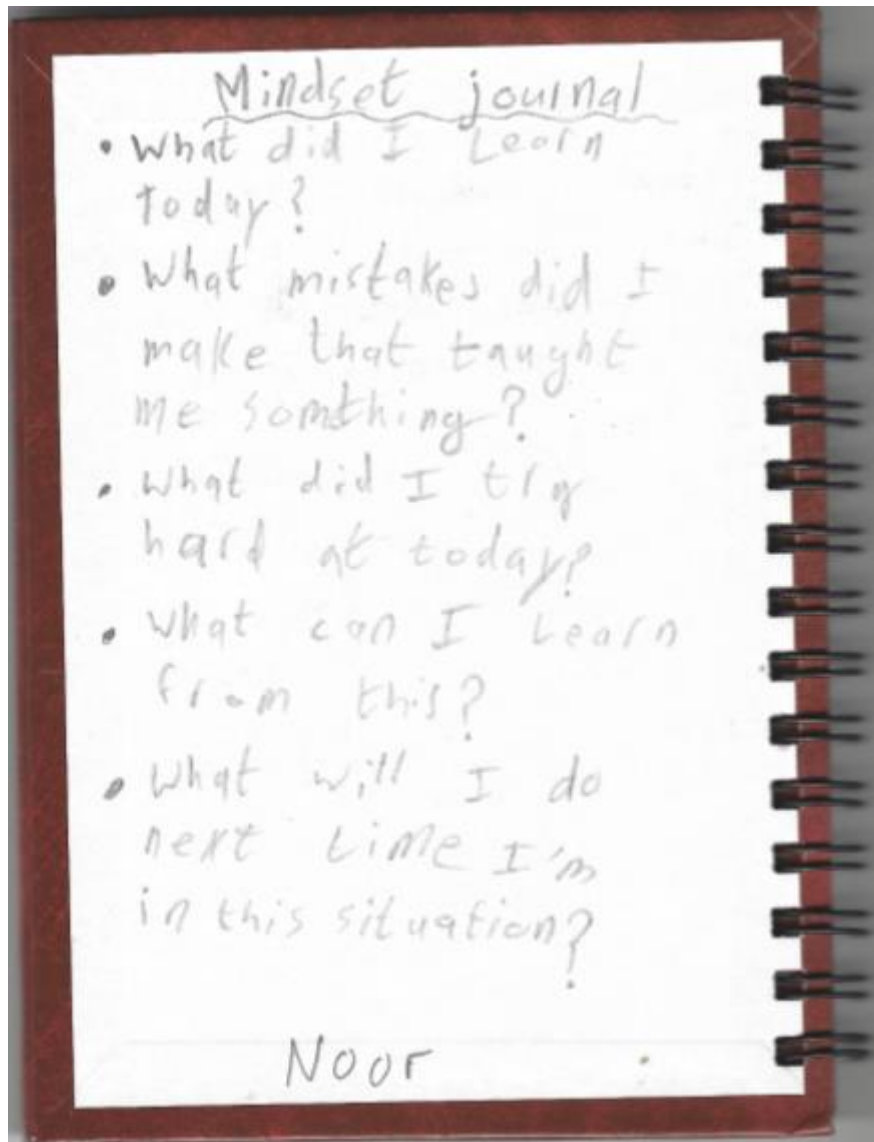 Mindset journal
• What did I Learn
today?
• What mistakes did I
make that taught
me somthing?
• What did I try
hard at today?
• What can I Learn
from this?
• What will I do
next time I'm
in this situation?
Noor